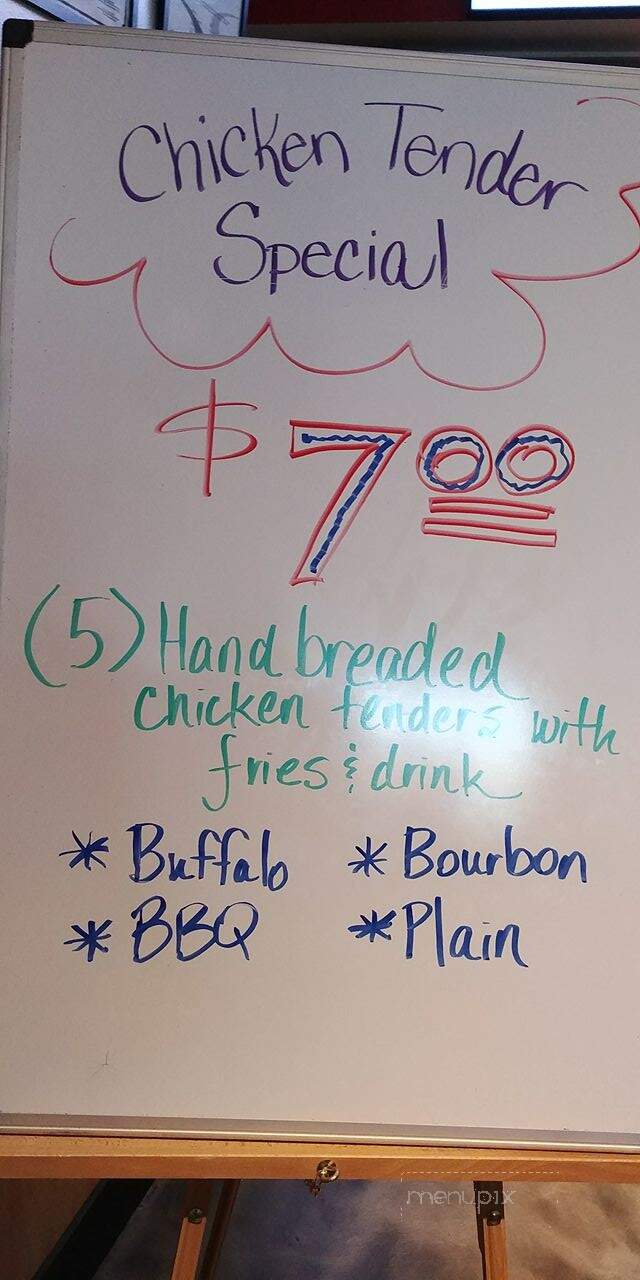 Chicken Tender
Special
$700
(5) Hand breaded
chicken tenders with
fries & drink
* Buffalo * Bourbon
* BBQ * Plain
menupix